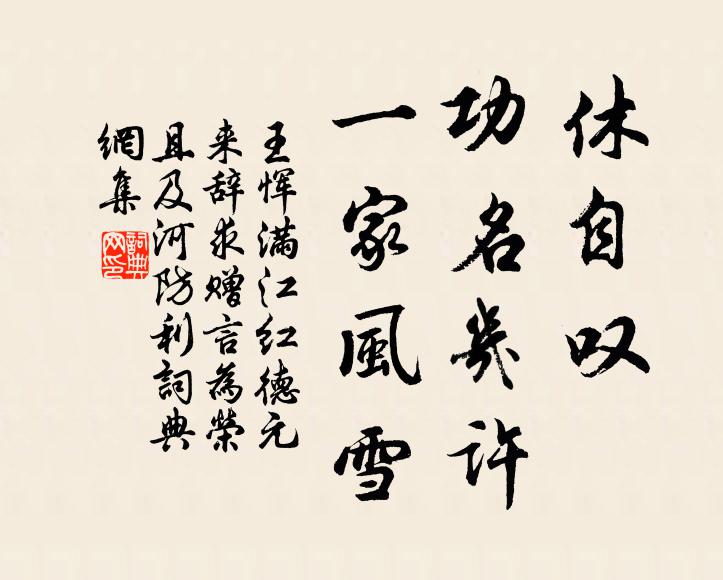 休自叹
功名几许
一家風雪
王恽满江红德元
来辞求赠言為榮
且及河防利詞典
網集
詞典網印